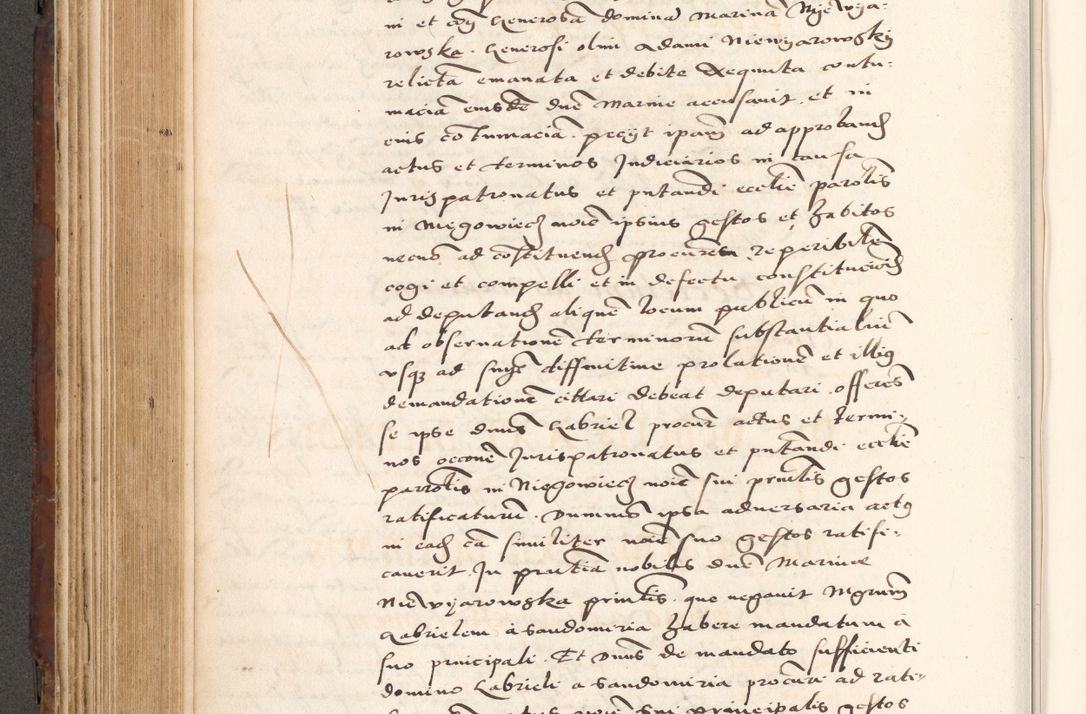 ni et cōtra Generosā dominā Marinā Nyewya-
rowska. Generosi olim Adami Niewyarowsky
relictā emanata et debite exequuta contu-
maciā eiusdē dnē Marine accusavit. et in
eius cōtumaciā. pecijt ipam̄ ad approband
actus et terminos Judiciarios in causa
Jurispatronatus et pntandi ecclie parolis
in Niegowiecz noīe ipsius gestos et habitos
necnō ad cōstituend procurem reperibilē
cogi et compelli et in defectu constitucionis
ad deputand aliquē locum publicū in quo
ad observationē terminorū substantialiū
usqz ad snie diffinitive prolationē et illius
demandationē cittari debeat deputari. offerēs
se ipse dnus Gabriel procur actus et termi-
nos occōne Jurispatronatus et pntandi ecclie
parrolis in Niegowiecz noīe sui prncplis gestos
ratificaturū. Dummō ipsa adversaria actus
in ead cā similiter noīe suo gestos ratifi-
caverit. In pntia nobilis dnē Marine
Niewyarowska princlis. que negavit Mgrum
Gabrielem a Sandomiria habere mandatum a
suo principali. Et Dnus de mandato sufficienti
domino Gabrieli a Sandomiria procuri ad rati-
principalis gestos